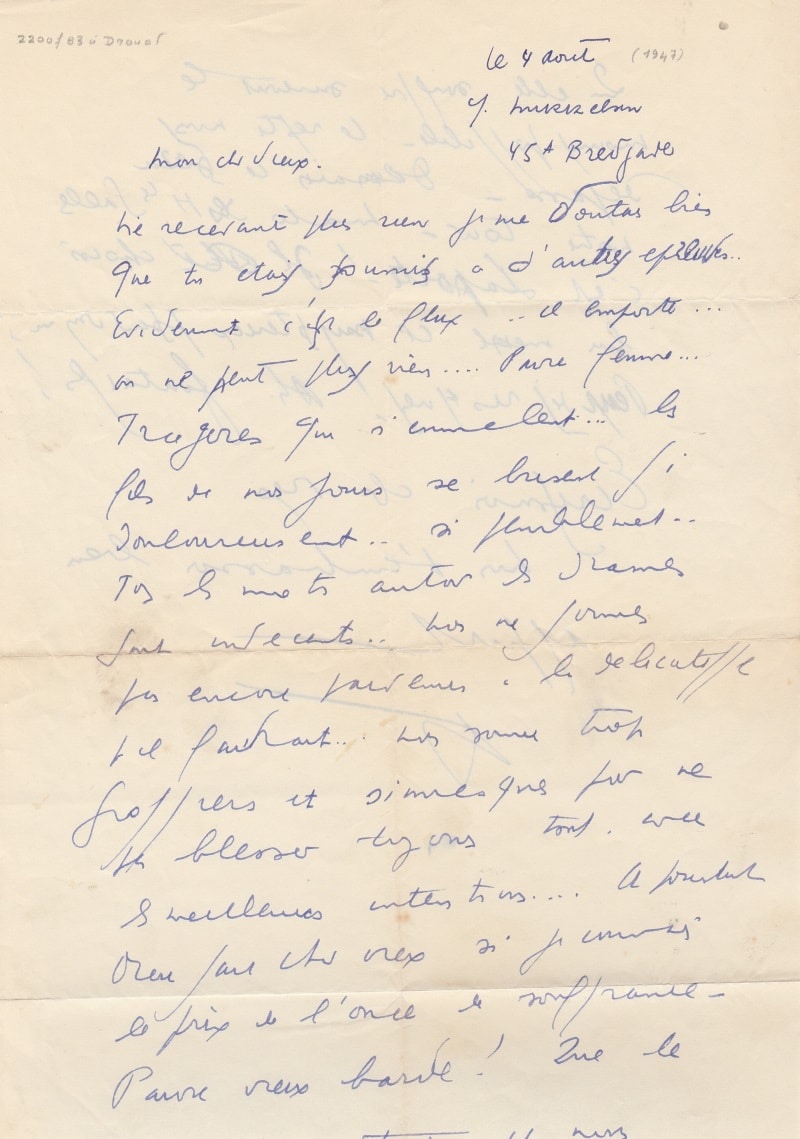 2200/83 à Drouot
le 4 août (1947)
c/. Mikkelsen
45A Bredgade
Mon cher Vieux.
Ne recevant plus rien je me doutais bien
que tu etais soumis a d'autres epreuves..
Evidemment c'est le flux .. il emporte...
on ne peut plus rien.... Pauvre femme...
Tragedies qui s'emmelent... les
fils de nos jours se brisent si
douloureusement.. si
Tous les mots autour des drames
sont indecents.. Nous ne sommes
pas encore parvenus à la delicatesse
qu'il faudrait... nous sommes trop
grossiers et simiesques pour ne
pas blesser toujours tout. avec
les meilleures intentions.... Et pourtant
Dieu sait cher vieux si je connais
le prix de l'once de souffrance -
Pauvre vieux barde! Que le